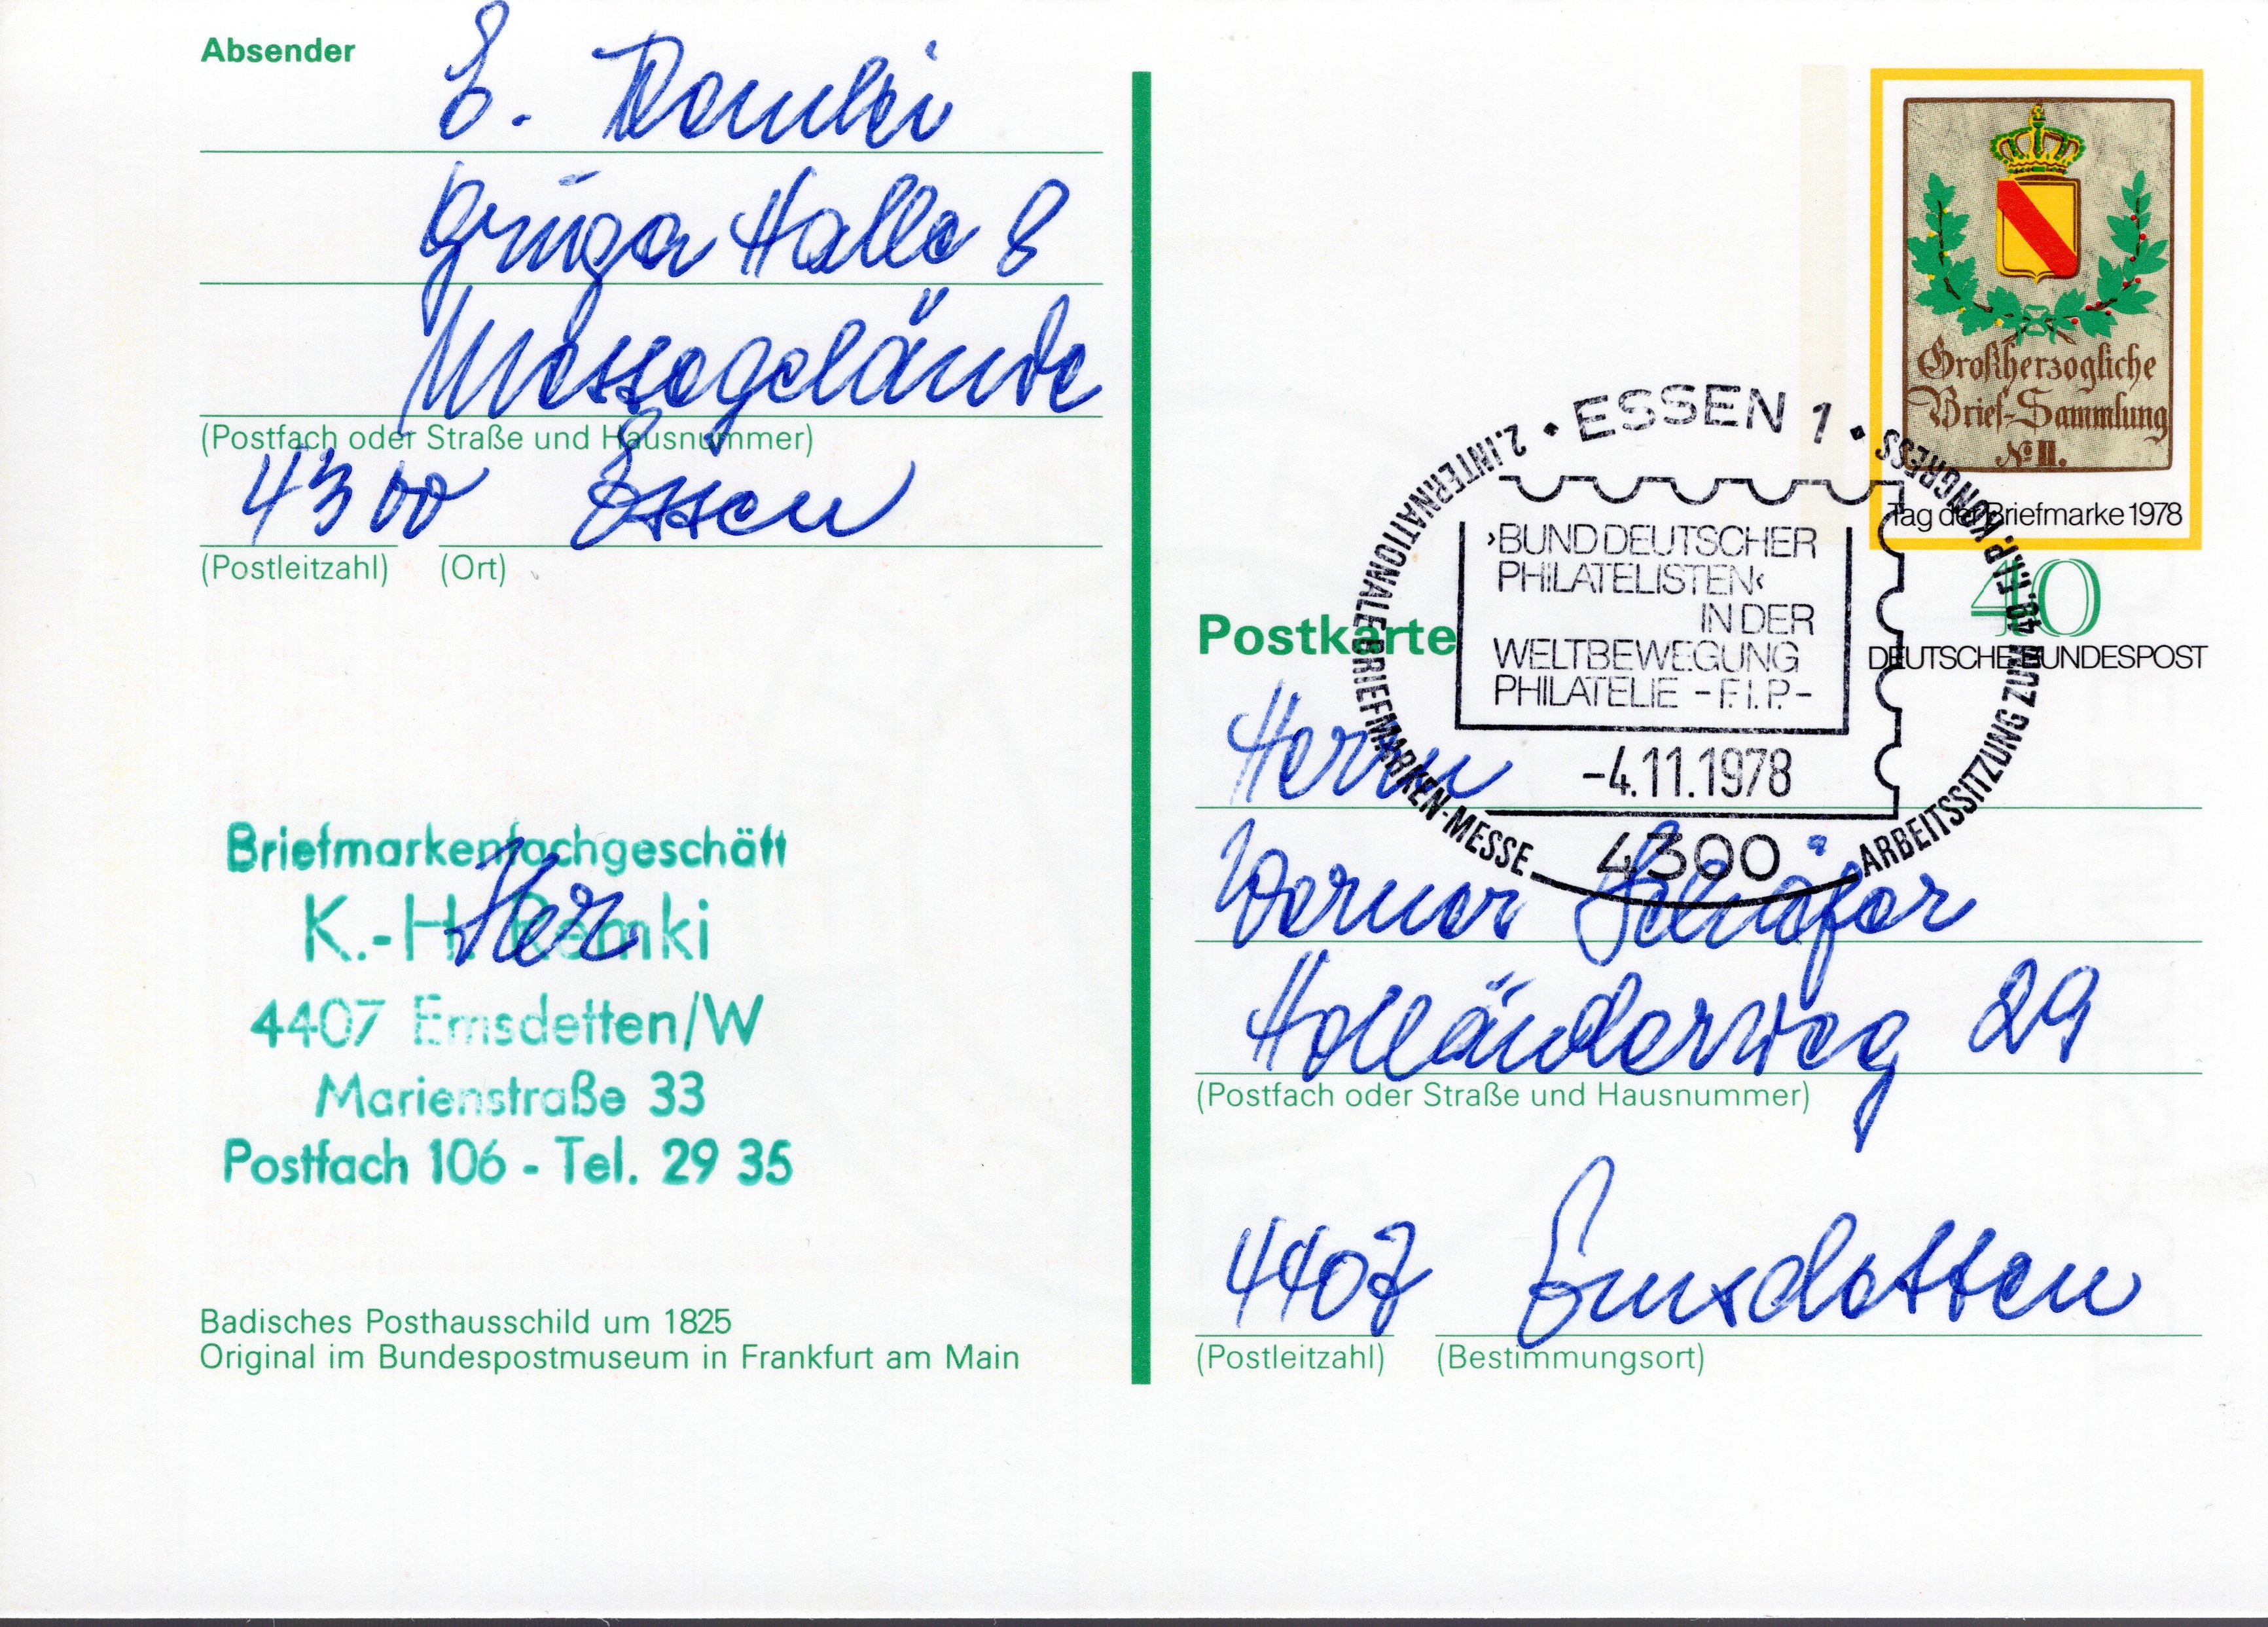 Absender
E. Remki
Gruga Halle 8
Messegelände
(Postfach oder Straße und Hausnummer)
4300 Essen
(Postleitzahl) (Ort)
Briefmarkenfachgeschäft
K.-H. Remki
Her
4407 Emsdetten/W
Marienstraße 33
Postfach 106 - Tel. 29 35
Badisches Posthausschild um 1825
Original im Bundespostmuseum in Frankfurt am Main
Großherzogliche
Brief-Sammlung
No II.
Tag der Briefmarke 1978
40
DEUTSCHE BUNDESPOST
• ESSEN 1 •
2. INTERNATIONALE BRIEFMARKEN-MESSE
ARBEITSSITZUNG ZUM 48. F.I.P. KONGRESS
›BUND DEUTSCHER
PHILATELISTEN‹
IN DER
WELTBEWEGUNG
PHILATELIE -F.I.P.-
-4.11.1978
4300
Postkarte
Herrn
Werner Schäfer
Holländerweg 29
(Postfach oder Straße und Hausnummer)
4407 Emsdetten
(Postleitzahl) (Bestimmungsort)